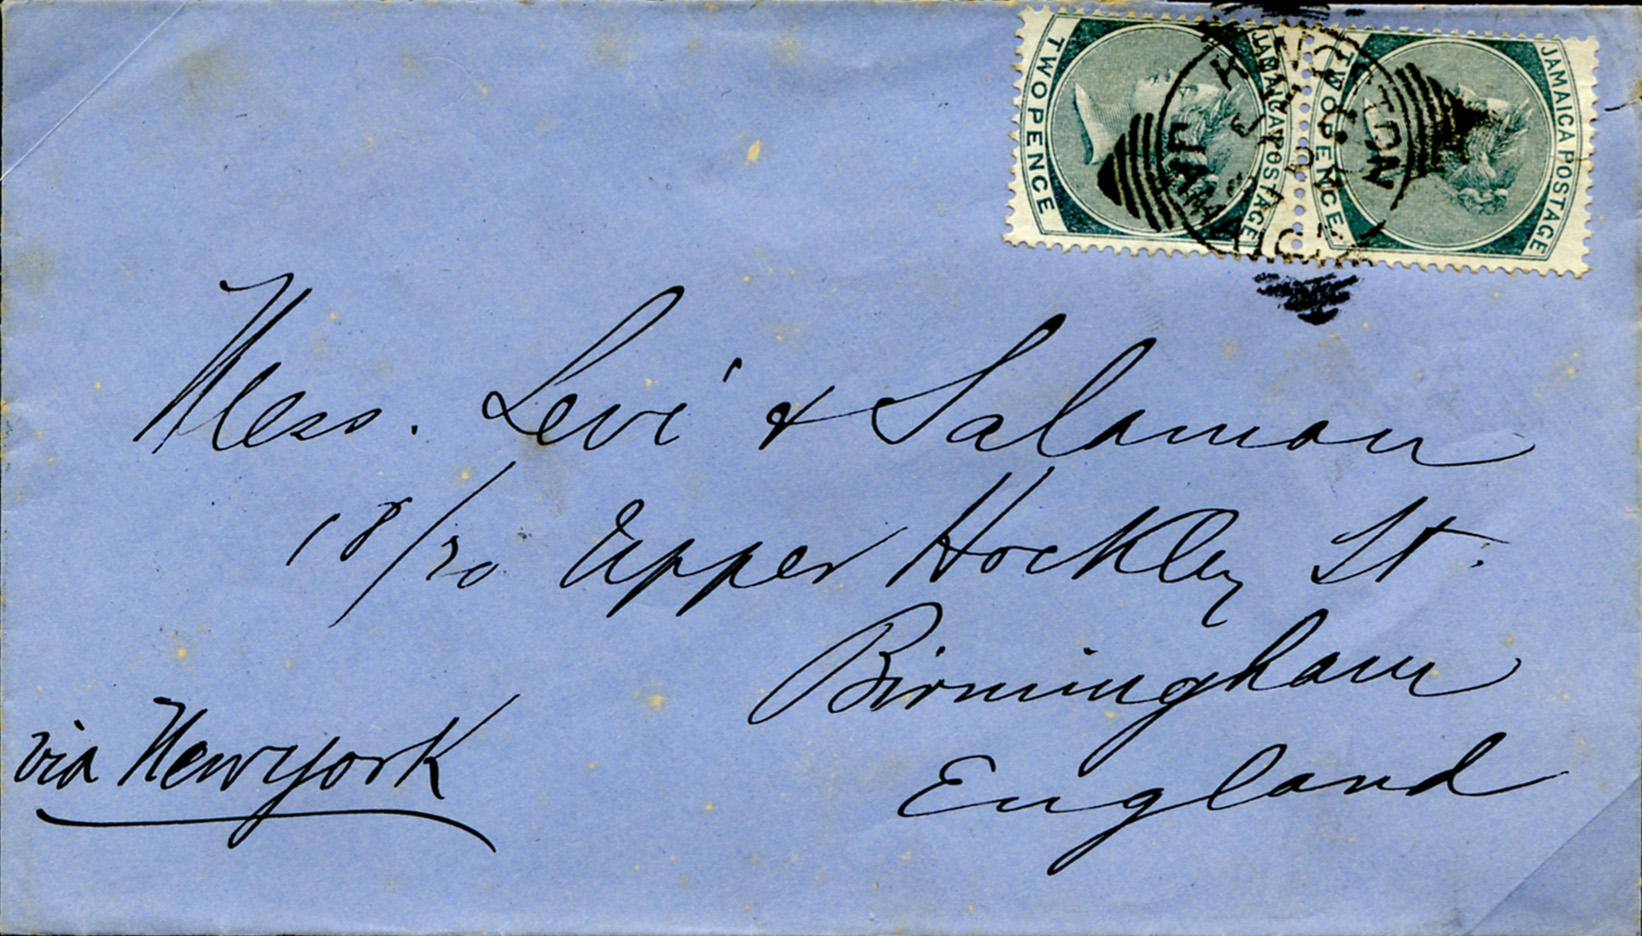 TWO PENCE
JAMAICA POSTAGE
TWO PENCE
JAMAICA POSTAGE
KINGSTON
JAMAICA
Mess. Levi & Salaman
18/20 Upper Hockley St.
Birmingham
England
via New york